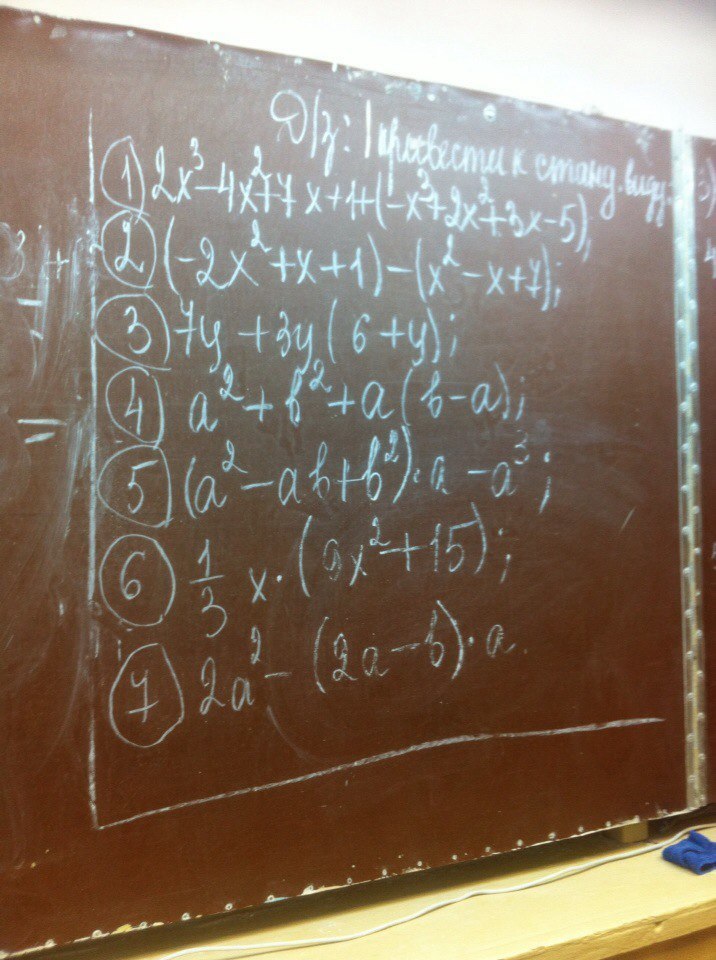 Д/з: Привести к станд. виду:
① 2x³-4x²+7x+1+(-x³+2x²+3x-5);
② (-2x²+x+1)-(x²-x+7);
③ 7y+3y(6+y);
④ a²+b²+a(b-a);
⑤ (a²-ab+b²)·a-a³;
⑥ 1/3 x·(9x²+15);
⑦ 2a²-(2a-b)·a.